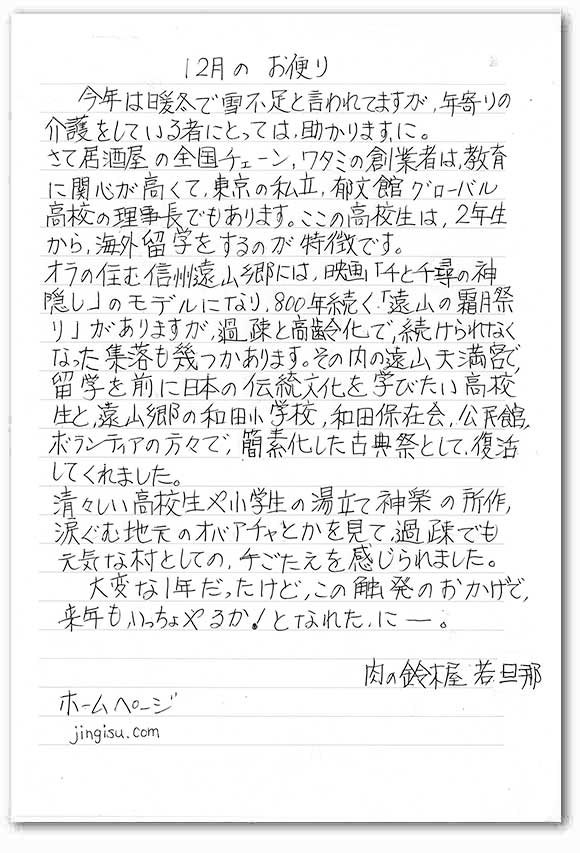 12月の お便り
今年は暖冬で雪不足と言われてますが、年寄りの
介護をしている者にとっては、助かりますに。
さて居酒屋の全国チェーン、ワタミの創業者は、教育
に関心が高くて、東京の私立、郁文館グローバル
高校の理事長でもあります。ここの高校生は、2年生
から、海外留学をするのが特徴です。
オラの住む信州遠山郷には、映画「千と千尋の神
隠し」のモデルになり、800年続く、「遠山の霜月祭
り」がありますが、過疎と高齢化で、続けられなく
なった集落も幾つかあります。その内の遠山天満宮で、
留学を前に日本の伝統文化を学びたい高校
生と、遠山郷の和田小学校、和田保存会、公民館、
ボランティアの方々で、簡素化した古典祭として、復活
してくれました。
清々しい高校生や小学生の湯立て神楽の所作、
涙ぐむ地元のオバアチャとかを見て、過疎でも
元気な村としての、手ごたえを感じられました。
大変な1年だったけど、この触発のおかげで、
来年も、いっちょやるか!となれた、にー。
肉の鈴木屋 若旦那
ホームページ
jingisu.com